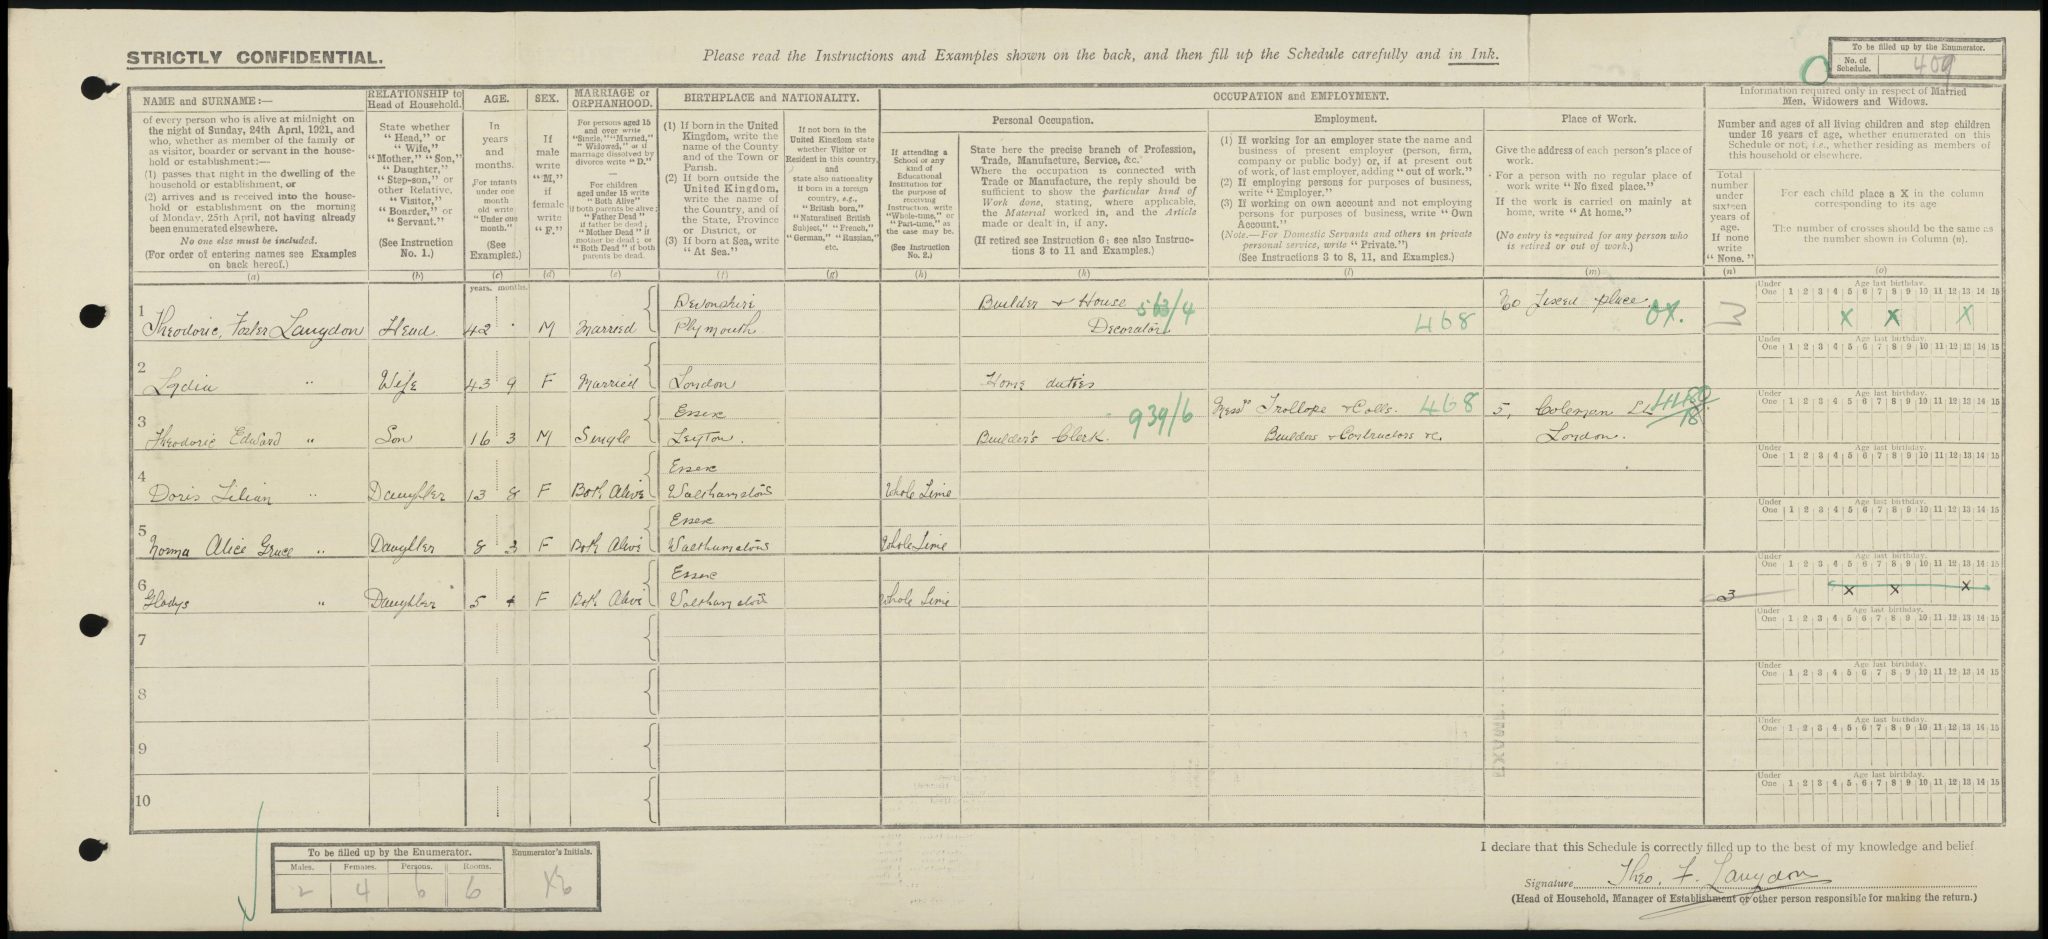 STRICTLY CONFIDENTIAL.
Please read the Instructions and Examples shown on the back, and then fill up the Schedule carefully and in Ink.
To be filled up by the Enumerator.
No. of Schedule. 409
NAME and SURNAME:—
of every person who is alive at midnight on
the night of Sunday, 24th April, 1921, and
who, whether as member of the family or
as visitor, boarder or servant in the house-
hold or establishment:—
(1) passes that night in the dwelling of the
household or establishment, or
(2) arrives and is received into the house-
hold or establishment on the morning
of Monday, 25th April, not having already
been enumerated elsewhere.
No one else must be included.
(For order of entering names see Examples
on back hereof.)
(a)
RELATIONSHIP to
Head of Household.
State whether
"Head," or
"Wife,"
"Mother," "Son,"
"Daughter,"
"Step-son," or
other Relative,
"Visitor,"
"Boarder," or
"Servant."
(See Instruction
No. 1.)
(b)
AGE.
In
years
and
months.
For infants
under one
month
old write
"Under one
month."
(See
Examples.)
(c)
SEX.
If
male
write
"M,"
if
female
write
"F."
(d)
MARRIAGE or
ORPHANHOOD.
For persons aged 15
and over write
"Single," "Married,"
"Widowed," or if
marriage dissolved by
divorce write "D."
For children
aged under 15 write
"Both Alive"
if both parents be alive;
"Father Dead"
if father be dead;
"Mother Dead" if
mother be dead; or
"Both Dead" if both
parents be dead.
(e)
BIRTHPLACE and NATIONALITY.
(1) If born in the United
Kingdom, write the
name of the County
and of the Town or
Parish.
(2) If born outside the
United Kingdom,
write the name of
the Country, and of
the State, Province
or District, or
(3) If born at Sea, write
"At Sea."
(f)
If not born in the
United Kingdom state
whether Visitor or
Resident in this country,
and
state also nationality
if born in a foreign
country, e.g.,
"British born,"
"Naturalised British
Subject," "French,"
"German," "Russian,"
etc.
(g)
OCCUPATION and EMPLOYMENT.
Personal Occupation.
If attending a
School or any
kind of
Educational
Institution for
the purpose of
receiving
Instruction, write
"Whole-time," or
"Part-time," as
the case may be.
(See Instruction
No. 2.)
(h)
State here the precise branch of Profession,
Trade, Manufacture, Service, &c.
Where the occupation is connected with
Trade or Manufacture, the reply should be
sufficient to show the particular kind of
Work done, stating, where applicable,
the Material worked in, and the Article
made or dealt in, if any.
(If retired see Instruction 6; see also Instruc-
tions 3 to 11 and Examples.)
(k)
Employment.
(1) If working for an employer state the name and
business of present employer (person, firm,
company or public body) or, if at present out
of work, of last employer, adding "out of work."
(2) If employing persons for purposes of business,
write "Employer."
(3) If working on own account and not employing
persons for purposes of business, write "Own
Account."
(Note.—For Domestic Servants and others in private
personal service, write "Private.")
(See Instructions 3 to 8, 11, and Examples.)
(l)
Place of Work.
Give the address of each person's place of
work.
For a person with no regular place of
work write "No fixed place."
If the work is carried on mainly at
home, write "At home."
(No entry is required for any person who
is retired or out of work.)
(m)
Information required only in respect of Married
Men, Widowers and Widows.
Number and ages of all living children and step children
under 16 years of age, whether enumerated on this
Schedule or not, i.e., whether residing as members of
this household or elsewhere.
Total
number
under
sixteen
years of
age.
If none
write
"None."
(n)
For each child place a X in the column
corresponding to its age
The number of crosses should be the same as
the number shown in Column (n).
(o)
years. months.
1 Theodoric, Foster Langdon Head 42 M Married Devonshire Plymouth Builder & House Decorator 563/4 468 No fixed place OX. 3 X X X
2 Lydia " Wife 43 9 F Married London Home duties
3 Theodoric Edward " Son 16 3 M Single Essex Leyton. Builder's Clerk. 939/6 Messrs Trollope & Colls. 468 Builders & Contractors &c. 5, Coleman St London.
4 Doris Lilian " Daughter 13 8 F Both Alive Essex Walthamstow Whole Time
5 Norma Alice Grace " Daughter 8 3 F Both Alive Essex Walthamstow Whole Time
6 Gladys " Daughter 5 4 F Both Alive Essex Walthamstow Whole Time 3 X X X
7
8
9
10
Age last birthday.
Under One 1 2 3 4 5 6 7 8 9 10 11 12 13 14 15
Age last birthday.
Under One 1 2 3 4 5 6 7 8 9 10 11 12 13 14 15
Age last birthday.
Under One 1 2 3 4 5 6 7 8 9 10 11 12 13 14 15
Age last birthday.
Under One 1 2 3 4 5 6 7 8 9 10 11 12 13 14 15
Age last birthday.
Under One 1 2 3 4 5 6 7 8 9 10 11 12 13 14 15
Age last birthday.
Under One 1 2 3 4 5 6 7 8 9 10 11 12 13 14 15
Age last birthday.
Under One 1 2 3 4 5 6 7 8 9 10 11 12 13 14 15
Age last birthday.
Under One 1 2 3 4 5 6 7 8 9 10 11 12 13 14 15
Age last birthday.
Under One 1 2 3 4 5 6 7 8 9 10 11 12 13 14 15
Age last birthday.
Under One 1 2 3 4 5 6 7 8 9 10 11 12 13 14 15
To be filled up by the Enumerator.
Males. Females. Persons. Rooms.
2 4 6 6
Enumerator's Initials.
I declare that this Schedule is correctly filled up to the best of my knowledge and belief
Signature Theo. F. Langdon
(Head of Household, Manager of Establishment or other person responsible for making the return.)